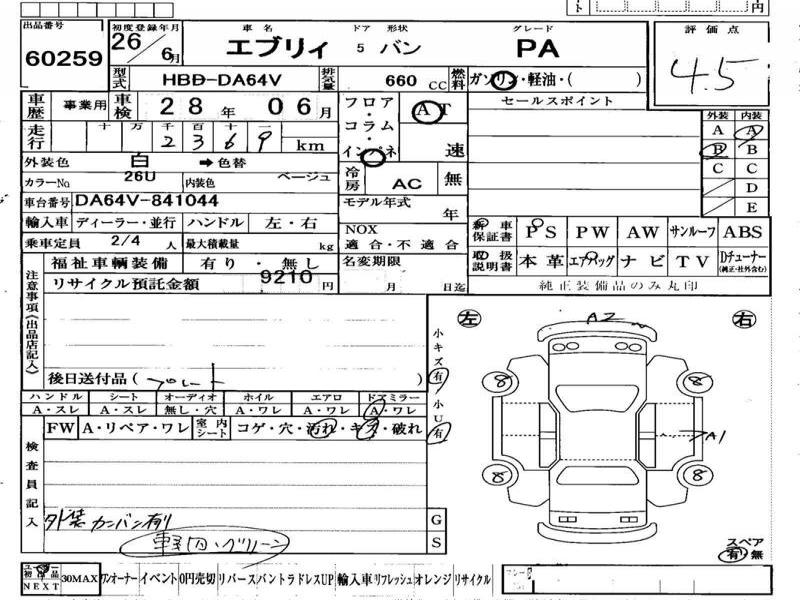 出品番号 60259
初度登録年月 26 6月
車名 エブリィ
ドア 形状 5 バン
グレード PA
評価点 4.5
型式 HBD-DA64V
排気量 660 CC
燃料 ガソリン・軽油・( )
車歴 事業用
車検 28年 06月
フロア・コラム・インパネ
AT
速
セールスポイント
走行 十 万 千 百 十 一
2 3 6 9 km
外装色 白 ➡色替
カラーNo 26U 内装色 ベージュ
冷房 AC 無
車台番号 DA64V-841044
モデル年式 年
輸入車 ディーラー・並行 ハンドル 左・右
NOX 適合・不適合
乗車定員 2/4 人 最大積載量 kg
名変期限 月 日迄
福祉車輌装備 有り・無し
リサイクル預託金額 9210 円
外装 内装
A A
B B
C C
D
E
新車保証書 PS PW AW サンルーフ ABS
取扱説明書 本革 エアバッグ ナビ TV Dチューナー (純正・社外含む)
純正装備品のみ丸印
注意事項(出品店記入)
後日送付品 ( プレート )
ハンドル シート オーディオ ホイル エアロ ドアミラー
A・スレ A・スレ 無し・穴 A・ワレ A・ワレ A・ワレ
FW A・リペア・ワレ 室内シート コゲ・穴・汚れ・キズ・破れ
検査員記入
外装 カンバン有り
軽内・グリーン
G
S
小キズ 有
小U 有
左 右
A2
8 8
A1
8 8
スペア 有 無
初出品 NEXT 30MAX ワンオーナー イベント 0円売切 リバース バントラ ドレスUP 輸入車 リフレッシュ オレンジ リサイクル